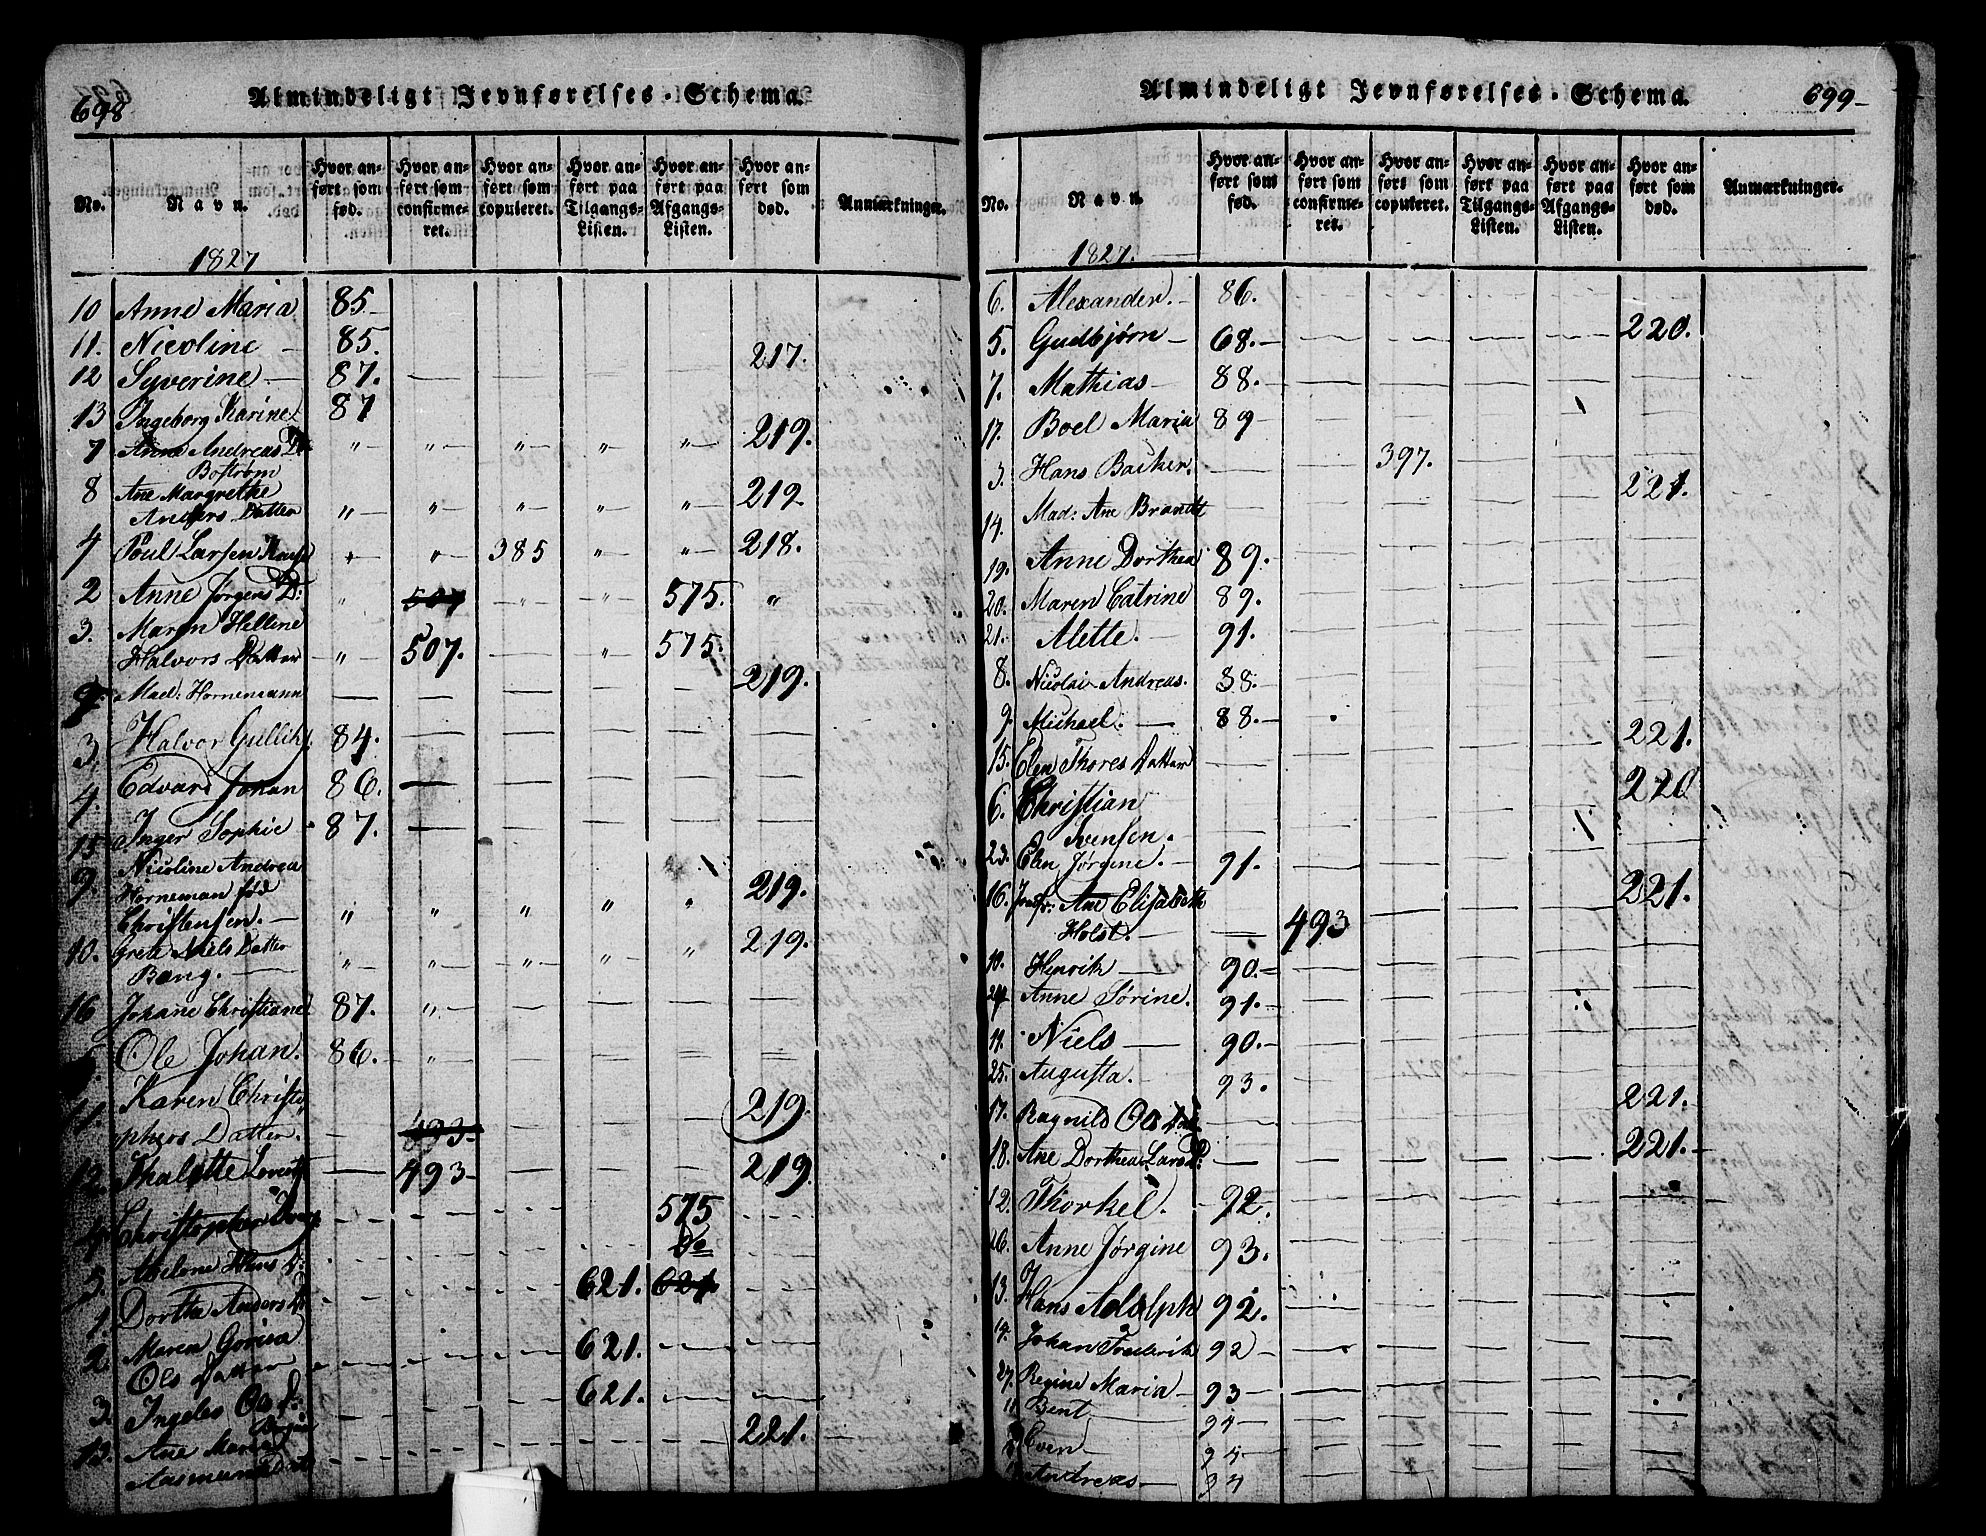 698
Almindeligt Jevnførelses-Schema.
No.
Navn.
Hvor anført som fød.
Hvor anført som confirmeret.
Hvor anført som copuleret.
Hvor anført paa Tilgangs-Listen.
Hvor anført paa Afgangs-Listen.
Hvor anført som død.
Anmærkninger.
1827
10 Anne Maria 85.
11. Nicoline 85. 217.
12 Syverine 87.
13 Ingeborg Karine 87
7 Anne Andreas D. 219.
Bostrøm
8 Ane Margrethe
Anders Datter 219.
4 Poul Larsen 385 218.
2 Anne Jørgens D: 507 575.
3. Maren Hellene
Halvors Datter 507. 575.
Mad: Hornemann 219.
3. Halvor Gullik 84.
4. Edvard Johan 86.
15 Inger Sophie 87.
9 Nicoline Andrea
Horneman fød
Christensen. 219.
10. Grete Niels Datter 219.
Bang.
16 Johane Christiane 87.
5. Ole Johan. 86.
11. Karen Christo
phers Datter. 493 219.
12. Thalette 493 219
4. Christopher 575
5. Helene Hans D: Do
1. Dorthe Anders D 621. 621
2 Maren
Ols Datter 621.
3. Ingeleb Ols D. 621.
13. Ane Maria 221.
Aasmunds
Almindeligt Jevnførelses-Schema.
699
No.
Navn.
Hvor anført som fød.
Hvor anført som confirmeret.
Hvor anført som copuleret.
Hvor anført paa Tilgangs-Listen.
Hvor anført paa Afgangs-Listen.
Hvor anført som død.
Anmærkninger.
1827.
6. Alexander. 86.
5. Gudbjørn 68. 220.
7. Mathias 88.
17. Boel Maria 89
3. Hans Backer. 397.
14. Mad: Ane Brandt 221.
19. Anne Dorthea 89.
20. Maren Catrine 89.
21. Alette. 91.
8. Nicolai Andreas. 88.
9. Michael. 88.
15. Elen Thores Datter 221.
6. Christian 220
Svensen.
23. Elen Jørgine. 91.
16. Jomfr: Ane Elisabeth 221.
Holst. 493
10. Henrik 90.
24. Anne Sørine. 91.
11. Niels 90.
25. Augusta. 93.
17. Ragnild Ols Dat 221.
18. Ane Dorthea Lars D: 221.
12. Thorkel. 92.
26. Anne Jørgine 93.
13. Hans Adolph 92.
14. Johan Frederik 92
27. Regine Maria 93
11 Bent 94
Even 94
Andreas 94